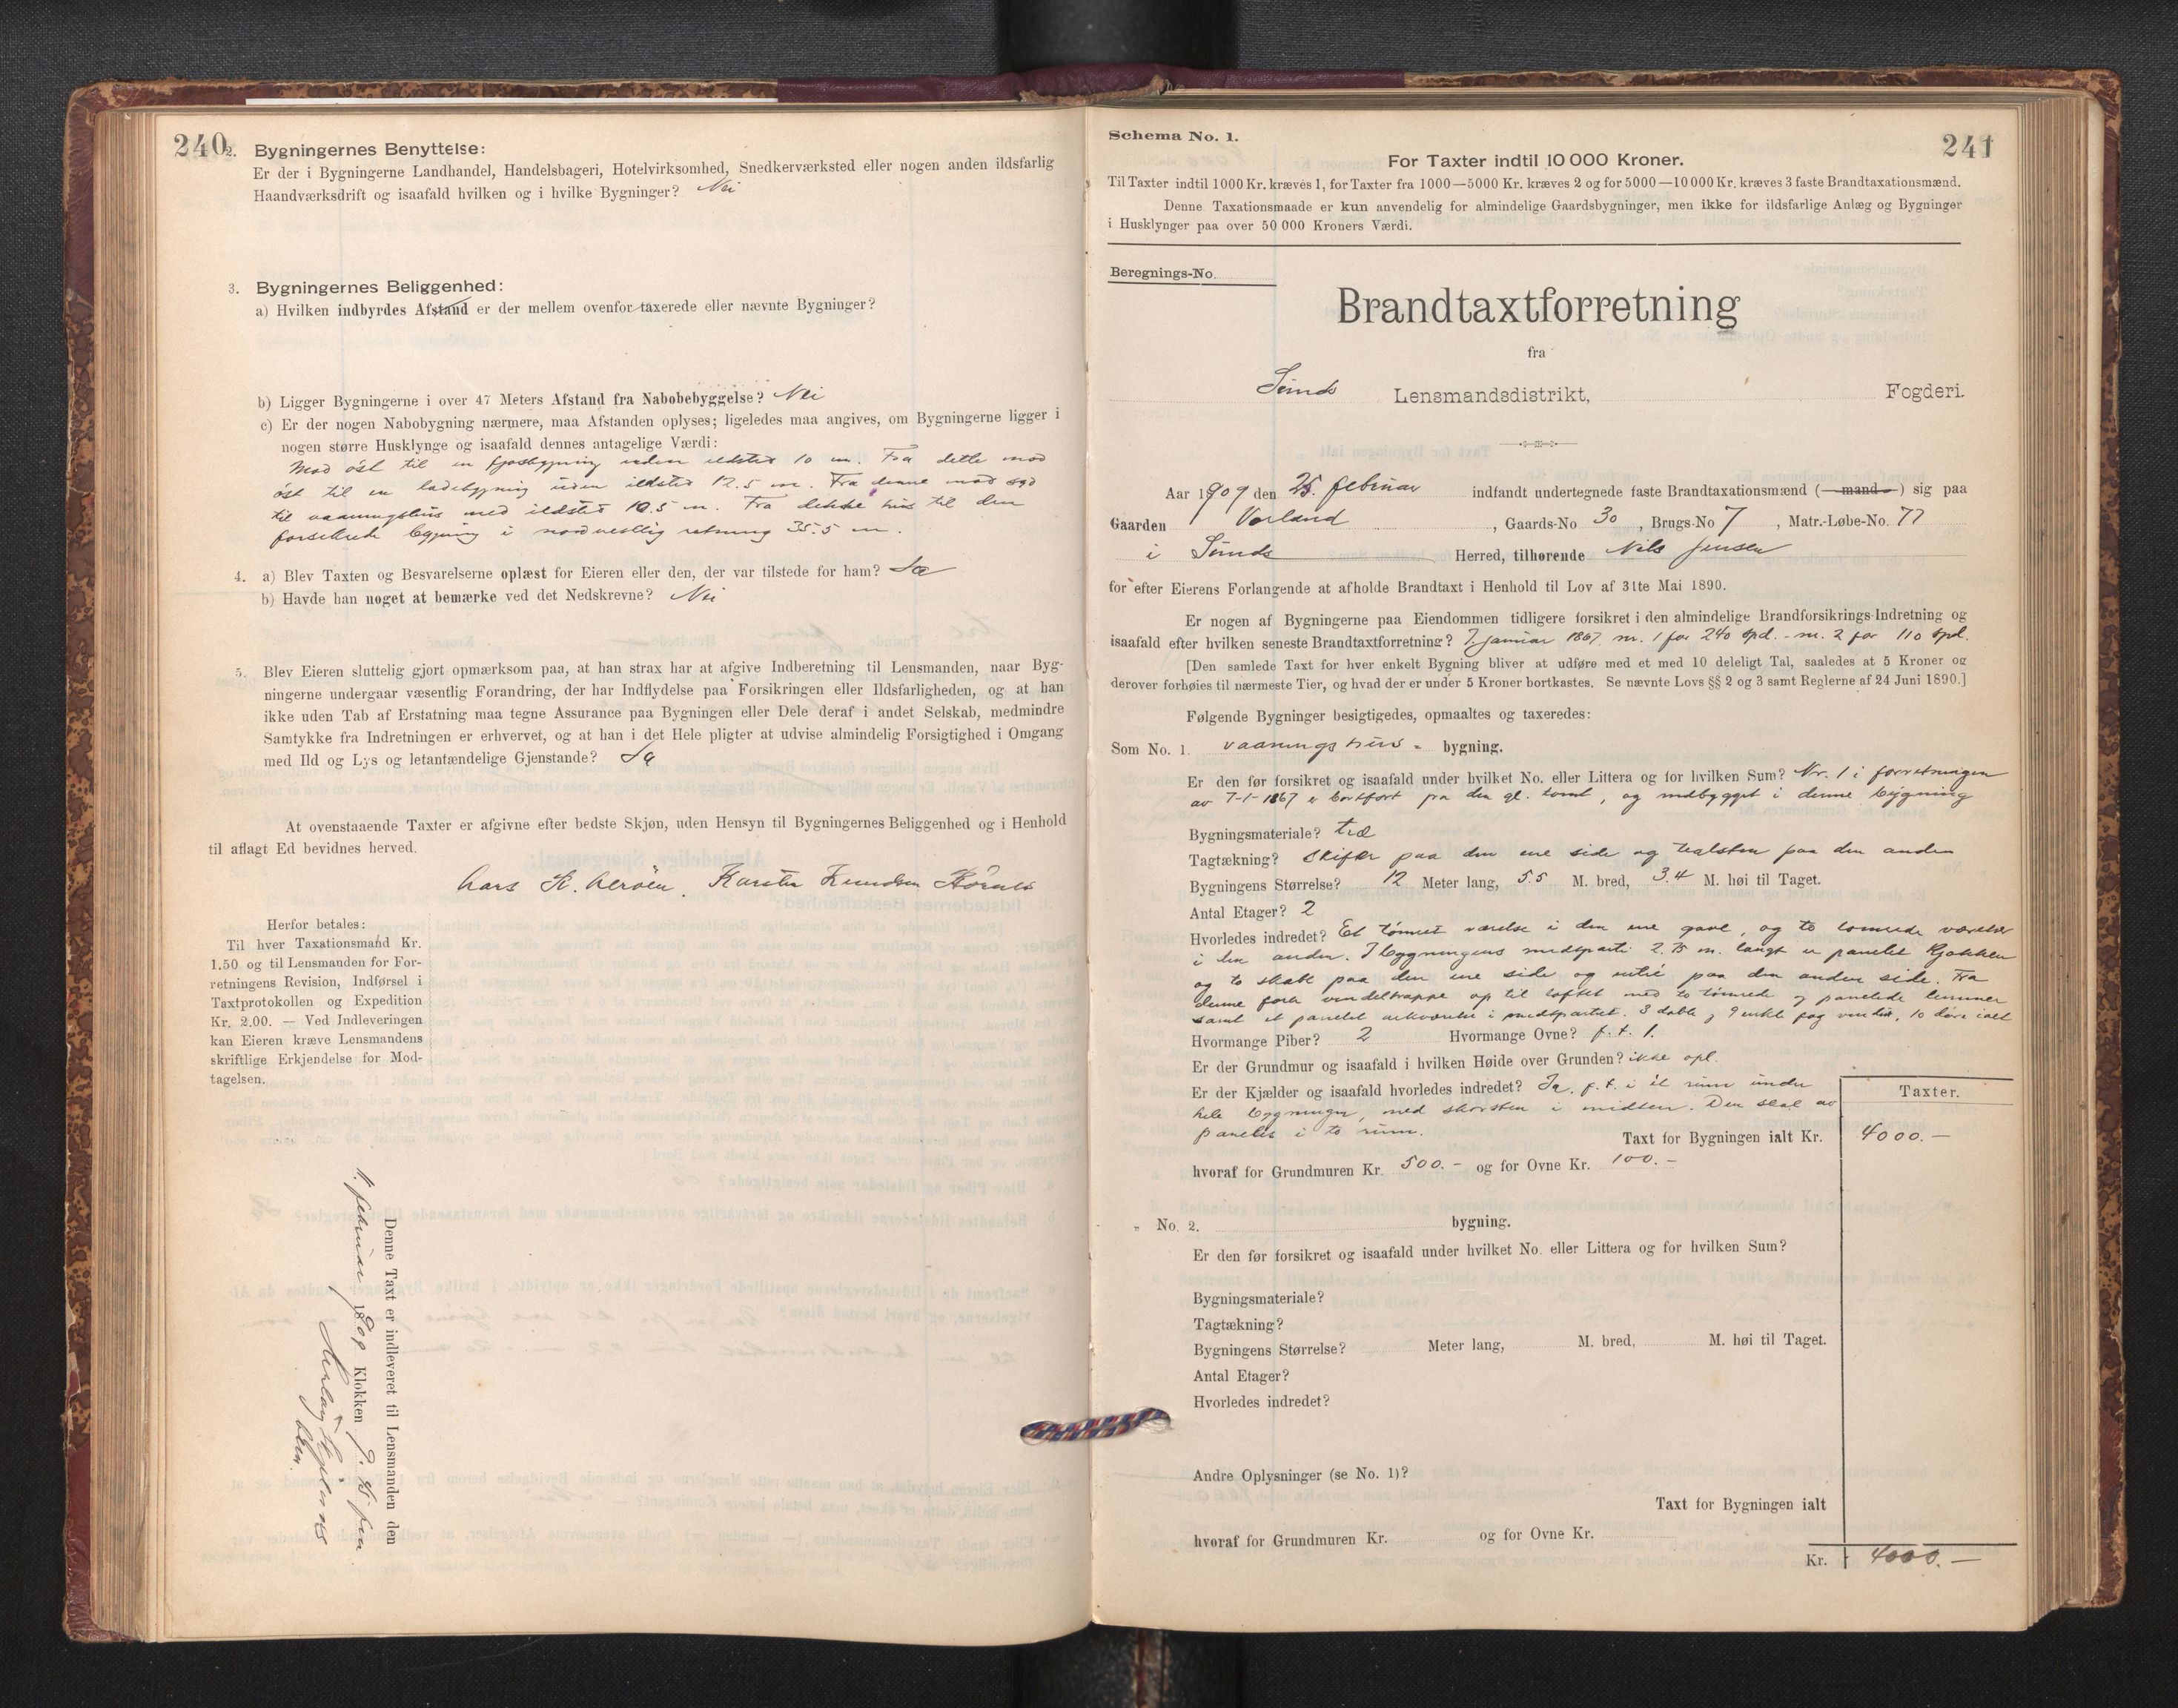 240
2. Bygningernes Benyttelse:
Er der i Bygningerne Landhandel, Handelsbageri, Hotelvirksomhed, Snedkerværksted eller nogen anden ildsfarlig
Haandværksdrift og isaafald hvilken og i hvilke Bygninger? Nei
3. Bygningernes Beliggenhed:
a) Hvilken indbyrdes Afstand er der mellem ovenfor taxerede eller nævnte Bygninger?
b) Ligger Bygningerne i over 47 Meters Afstand fra Nabobebyggelse? Nei
c) Er der nogen Nabobygning nærmere, maa Afstanden oplyses; ligeledes maa angives, om Bygningerne ligger i
nogen større Husklynge og isaafald dennes antagelige Værdi:
Mod öst til en fjosbygning uden ildsted 10 m. Fra dette mod
öst til en ladebygning uden ildsted 12.5 m. Fra denne mod syd
til vaaningshus med ildsted 10.5 m. Fra dette hus til den
forsikrede bygning i nordvestlig retning 35.5 m.
4. a) Blev Taxten og Besvarelserne oplæst for Eieren eller den, der var tilstede for ham? Ja
b) Havde han noget at bemærke ved det Nedskrevne? Nei
5. Blev Eieren sluttelig gjort opmærksom paa, at han strax har at afgive Indberetning til Lensmanden, naar Byg-
ningerne undergaar væsentlig Forandring, der har Indflydelse paa Forsikringen eller Ildsfarligheden, og at han
ikke uden Tab af Erstatning maa tegne Assurance paa Bygningen eller Dele deraf i andet Selskab, medmindre
Samtykke fra Indretningen er erhvervet, og at han i det Hele pligter at udvise almindelig Forsigtighed i Omgang
med Ild og Lys og letantændelige Gjenstande? Ja
At ovenstaaende Taxter er afgivne efter bedste Skjøn, uden Hensyn til Bygningernes Beliggenhed og i Henhold
til aflagt Ed bevidnes herved.
Lars K. Karsten Knudsen
Herfor betales:
Til hver Taxationsmand Kr.
1.50 og til Lensmanden for For-
retningens Revision, Indførsel i
Taxtprotokollen og Expedition
Kr. 2.00. — Ved Indleveringen
kan Eieren kræve Lensmandens
skriftlige Erkjendelse for Mod-
tagelsen.
Denne Taxt er indleveret til Lensmanden den
februar 1909 Klokken
241
Schema No. 1.
For Taxter indtil 10 000 Kroner.
Til Taxter indtil 1000 Kr. kræves 1, for Taxter fra 1000—5000 Kr. kræves 2 og for 5000—10000 Kr. kræves 3 faste Brandtaxationsmænd.
Denne Taxationsmaade er kun anvendelig for almindelige Gaardsbygninger, men ikke for ildsfarlige Anlæg og Bygninger
i Husklynger paa over 50 000 Kroners Værdi.
Beregnings-No.
Brandtaxtforretning
fra
Sunds Lensmandsdistrikt, Fogderi.
Aar 1909 den 25. februar indfandt undertegnede faste Brandtaxationsmænd (—mand—) sig paa
Gaarden Vorland, Gaards-No 30, Brugs-No 7, Matr.-Løbe-No. 77
i Sunds Herred, tilhørende Nils Jensen
for efter Eierens Forlangende at afholde Brandtaxt i Henhold til Lov af 31te Mai 1890.
Er nogen af Bygningerne paa Eiendommen tidligere forsikret i den almindelige Brandforsikrings-Indretning og
isaafald efter hvilken seneste Brandtaxtforretning? 7. januar 1867. nr. 1 for 240 spd. - nr. 2 for 110 spd.
[Den samlede Taxt for hver enkelt Bygning bliver at udføre med et med 10 deleligt Tal, saaledes at 5 Kroner og
derover forhøies til nærmeste Tier, og hvad der er under 5 Kroner bortkastes. Se nævnte Lovs §§ 2 og 3 samt Reglerne af 24 Juni 1890.]
Følgende Bygninger besigtigedes, opmaaltes og taxeredes:
Som No. 1. vaaningshus - bygning.
Er den før forsikret og isaafald under hvilket No. eller Littera og for hvilken Sum? Nr. 1 i forretningen
av 7-1-1867 er bortført fra den gl. tomt, og indbygget i denne bygning
Bygningsmateriale? træ
Tagtækning? Skifer paa den ene side og paa den anden
Bygningens Størrelse? 12 Meter lang, 5.5 M. bred, 3.4 M. høi til Taget.
Antal Etager? 2
Hvorledes indredet? Et tömret værelse i den ene gavl, og to tömrede værelser
i den anden. I bygningens midtparti 2.75 m. langt er panelet kjøkken
og to skabe paa den ene side og entré paa den anden side. Fra
denne fører vindeltrappe op til loftet med to tömrede og panelede lemmer
samt et panelet arkværelse i midtpartiet. 3 doble og 9 enkle fag vinduer, 10 døre ialt
Hvormange Piber? 2 Hvormange Ovne? f. t. 1.
Er der Grundmur og isaafald i hvilken Høide over Grunden? ikke opl.
Er der Kjælder og isaafald hvorledes indredet? Ja, f. t. i ét rum under
hele bygningen, med skorsten i midten. Den skal av
paneles i to rum. Taxt for Bygningen ialt Kr.
Taxter.
4000.—
hvoraf for Grundmuren Kr. 500.- og for Ovne Kr. 100.-
„ No. 2. bygning.
Er den før forsikret og isaafald under hvilket No. eller Littera og for hvilken Sum?
Bygningsmateriale?
Tagtækning?
Bygningens Størrelse? Meter lang, M. bred, M. høi til Taget.
Antal Etager?
Hvorledes indredet?
Andre Oplysninger (se No. 1)?
Taxt for Bygningen ialt
hvoraf for Grundmuren Kr. og for Ovne Kr.
Kr. 4000.—